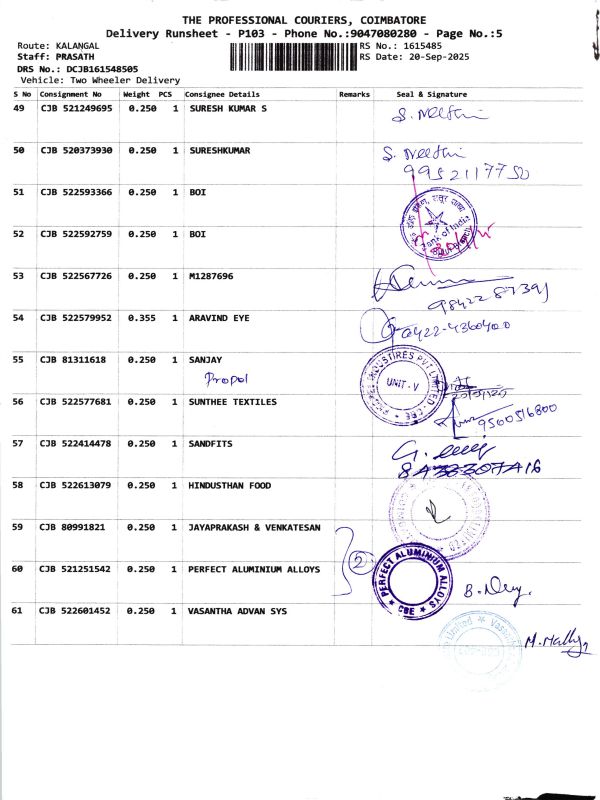 THE PROFESSIONAL COURIERS, COIMBATORE
Delivery Runsheet - P103 - Phone No.:9047080280 - Page No.:5
Route: KALANGAL RS No.: 1615485
Staff: PRASATH RS Date: 20-Sep-2025
DRS No.: DCJB161548505
Vehicle: Two Wheeler Delivery
S No Consignment No Weight PCS Consignee Details Remarks Seal & Signature
49 CJB 521249695 0.250 1 SURESH KUMAR S
50 CJB 520373930 0.250 1 SURESHKUMAR
9952117750
51 CJB 522593366 0.250 1 BOI
Bank of India
52 CJB 522592759 0.250 1 BOI
53 CJB 522567726 0.250 1 M1287696
9842287391
54 CJB 522579952 0.355 1 ARAVIND EYE
0422-4360400
55 CJB 81311618 0.250 1 SANJAY
Propol
UNIT-V
56 CJB 522577681 0.250 1 SUNTHEE TEXTILES
9500516800
57 CJB 522414478 0.250 1 SANDFITS
58 CJB 522613079 0.250 1 HINDUSTHAN FOOD
59 CJB 80991821 0.250 1 JAYAPRAKASH & VENKATESAN
2
60 CJB 521251542 0.250 1 PERFECT ALUMINIUM ALLOYS
PERFECT ALUMINIUM ALLOYS
CBE
61 CJB 522601452 0.250 1 VASANTHA ADVAN SYS